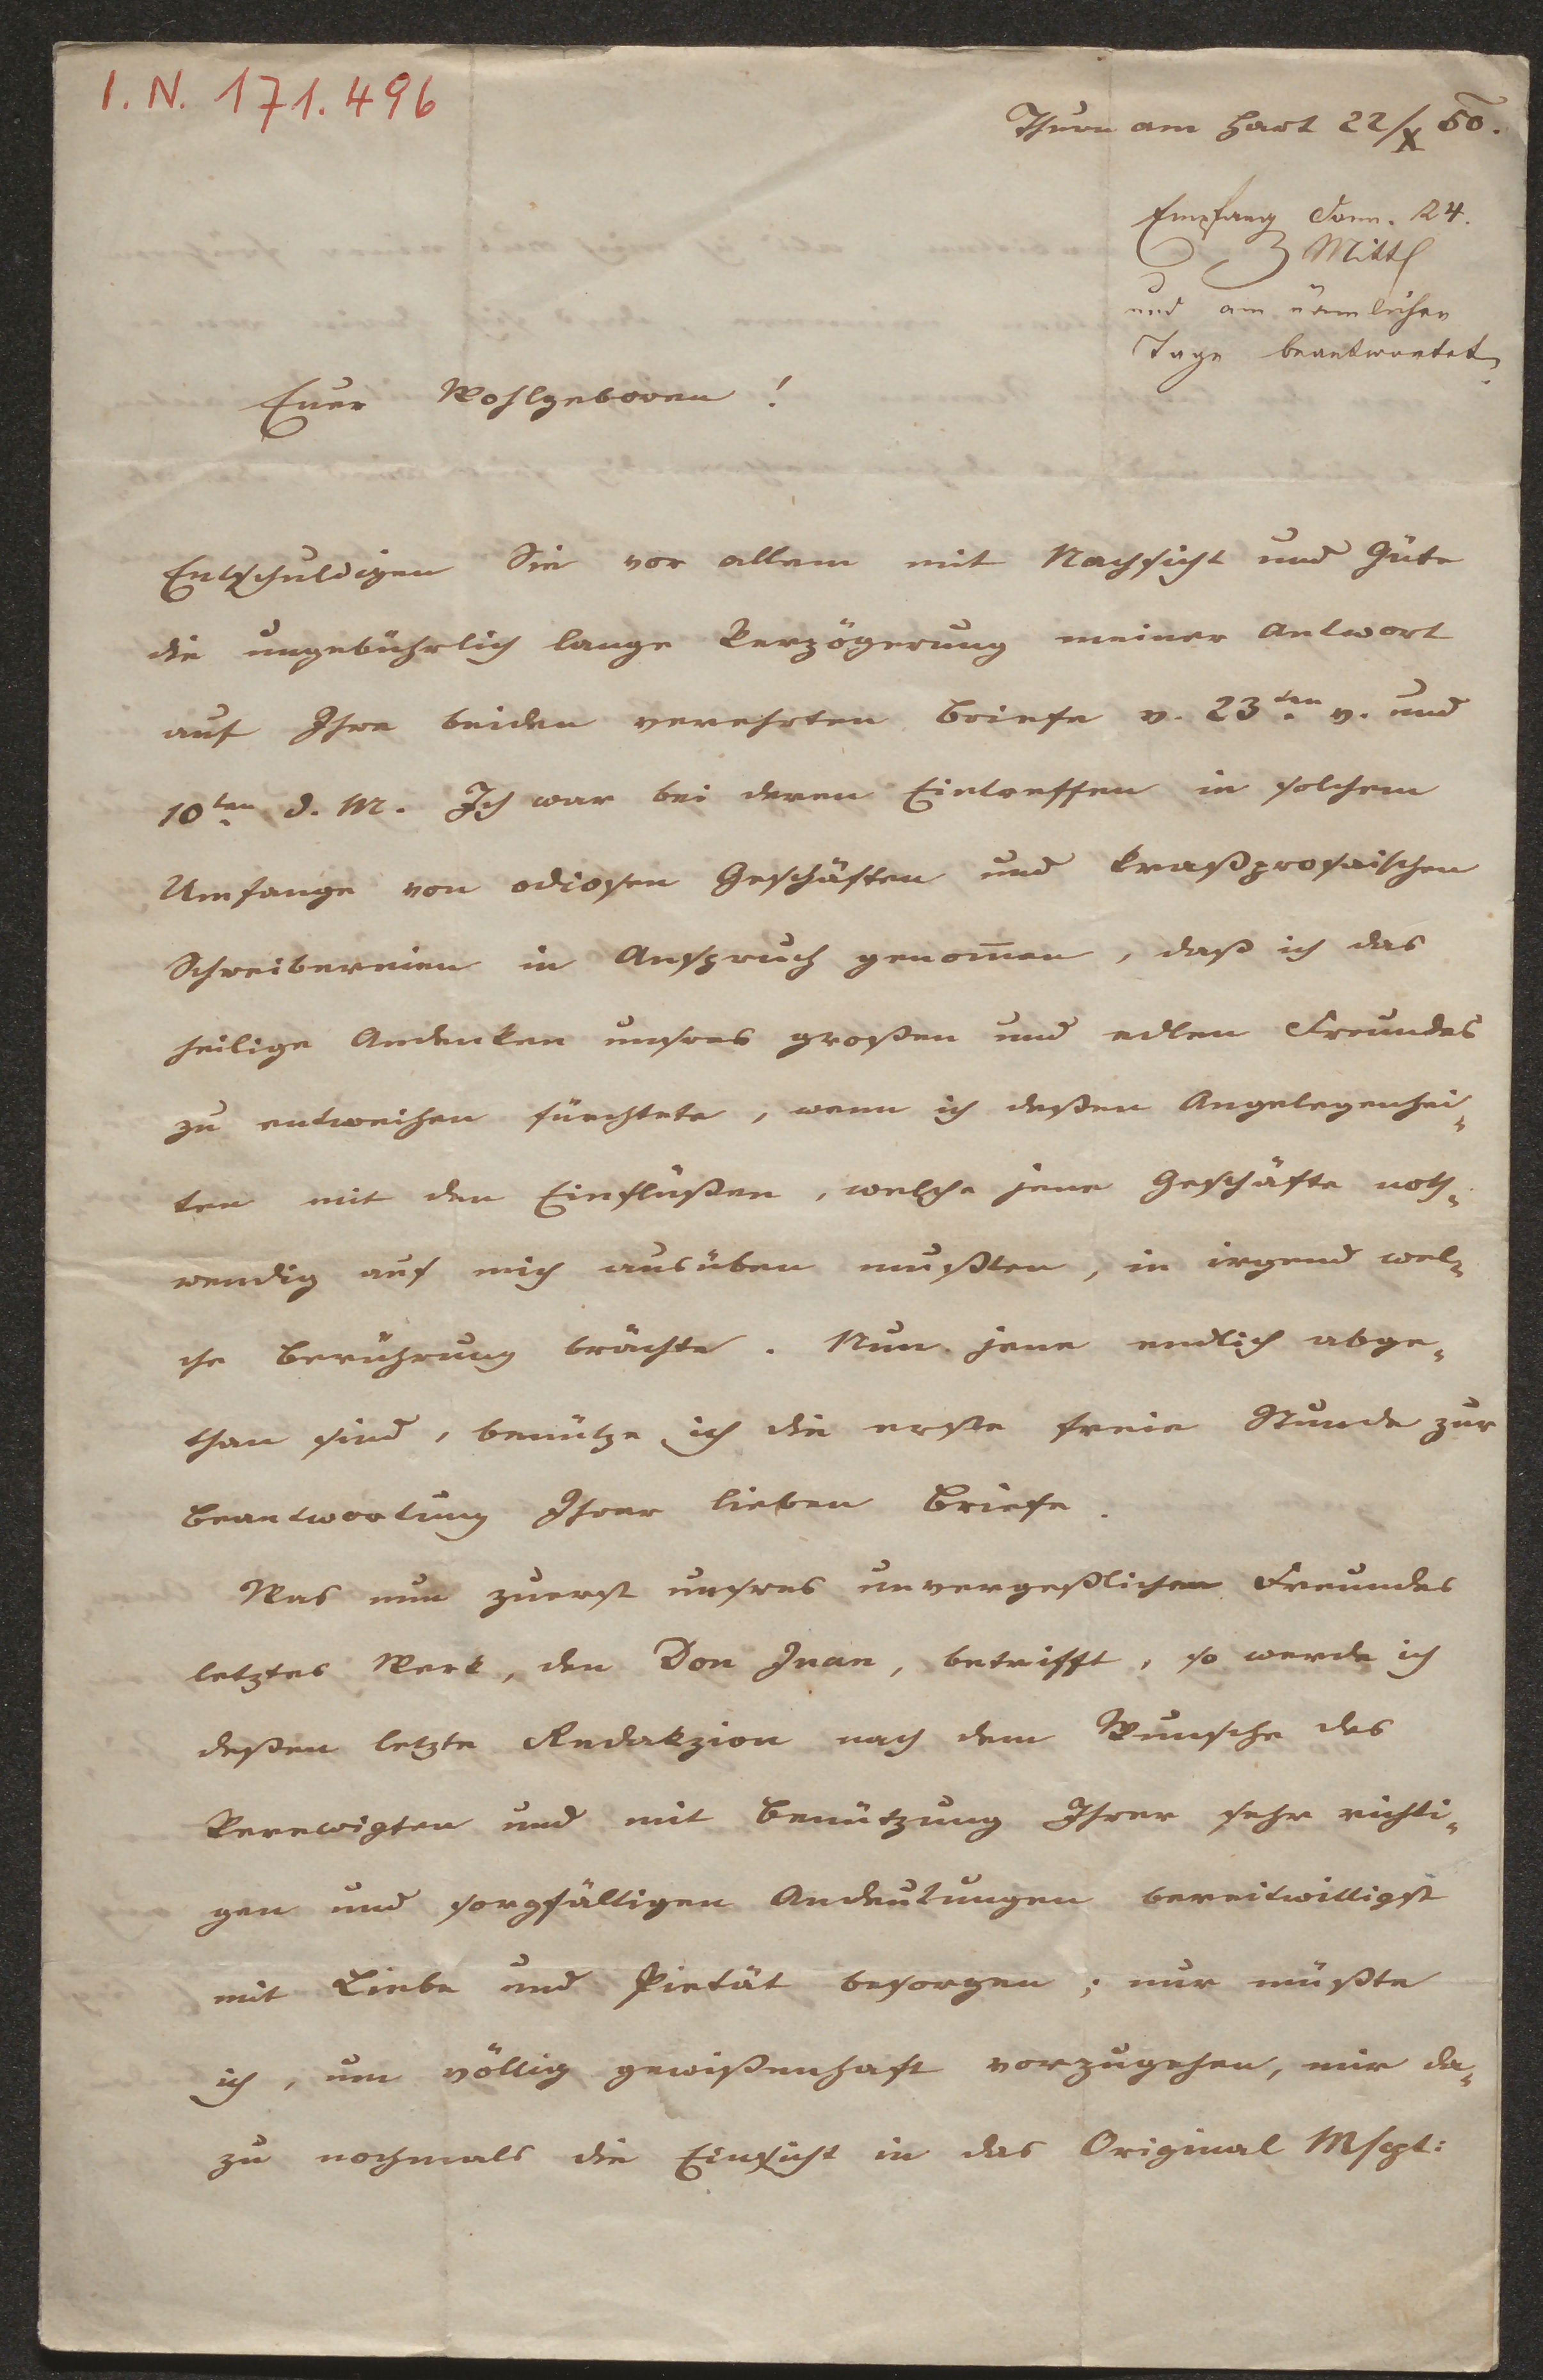 I. N. 171.496
Thurn am Hart 22/X 50.
Empfang Donn. 24.
Mitt
und am nämlichen
Tage beantwortet.
Euer Wohlgeboren!
Entschuldigen Sie vor allem mit Nachsicht und Güte
die ungebührlich lange Verzögerung meiner Antwort
auf Ihre beiden verehrten Briefe v. 23ten v. und
10ten d. M. Ich war bei deren Eintreffen in solchem
Umfange von odiosen Geschäften und kraßprosaischen
Schreibereien in Anspruch genom̅en, daß ich das
heilige Andenken unsres großen und edlen Freundes
zu entweihen fürchtete, wenn ich deßen Angelegenhei-
ten mit den Einflüßen, welche jene Geschäfte noth-
wendig auf mich ausüben mußten, in irgend wel-
che Berührung brächte. Nun jene endlich abge-
than sind, benütze ich die erste freie Stunde zur
Beantwortung Ihrer lieben Briefe.
Was nun zuerst unsres unvergeßlichen Freundes
letztes Werk, den Don Juan, betrifft, so werde ich
deßen letzte Redakzion nach dem Wunsche des
Verewigten und mit Benützung Ihrer sehr richti-
gen und sorgfältigen Andeutungen bereitwilligst
mit Liebe und Pietät besorgen; nur müßte
ich, um völlig gewißenhaft vorzugehen, mir da-
zu nochmals die Einsicht in das Original Mscpt: